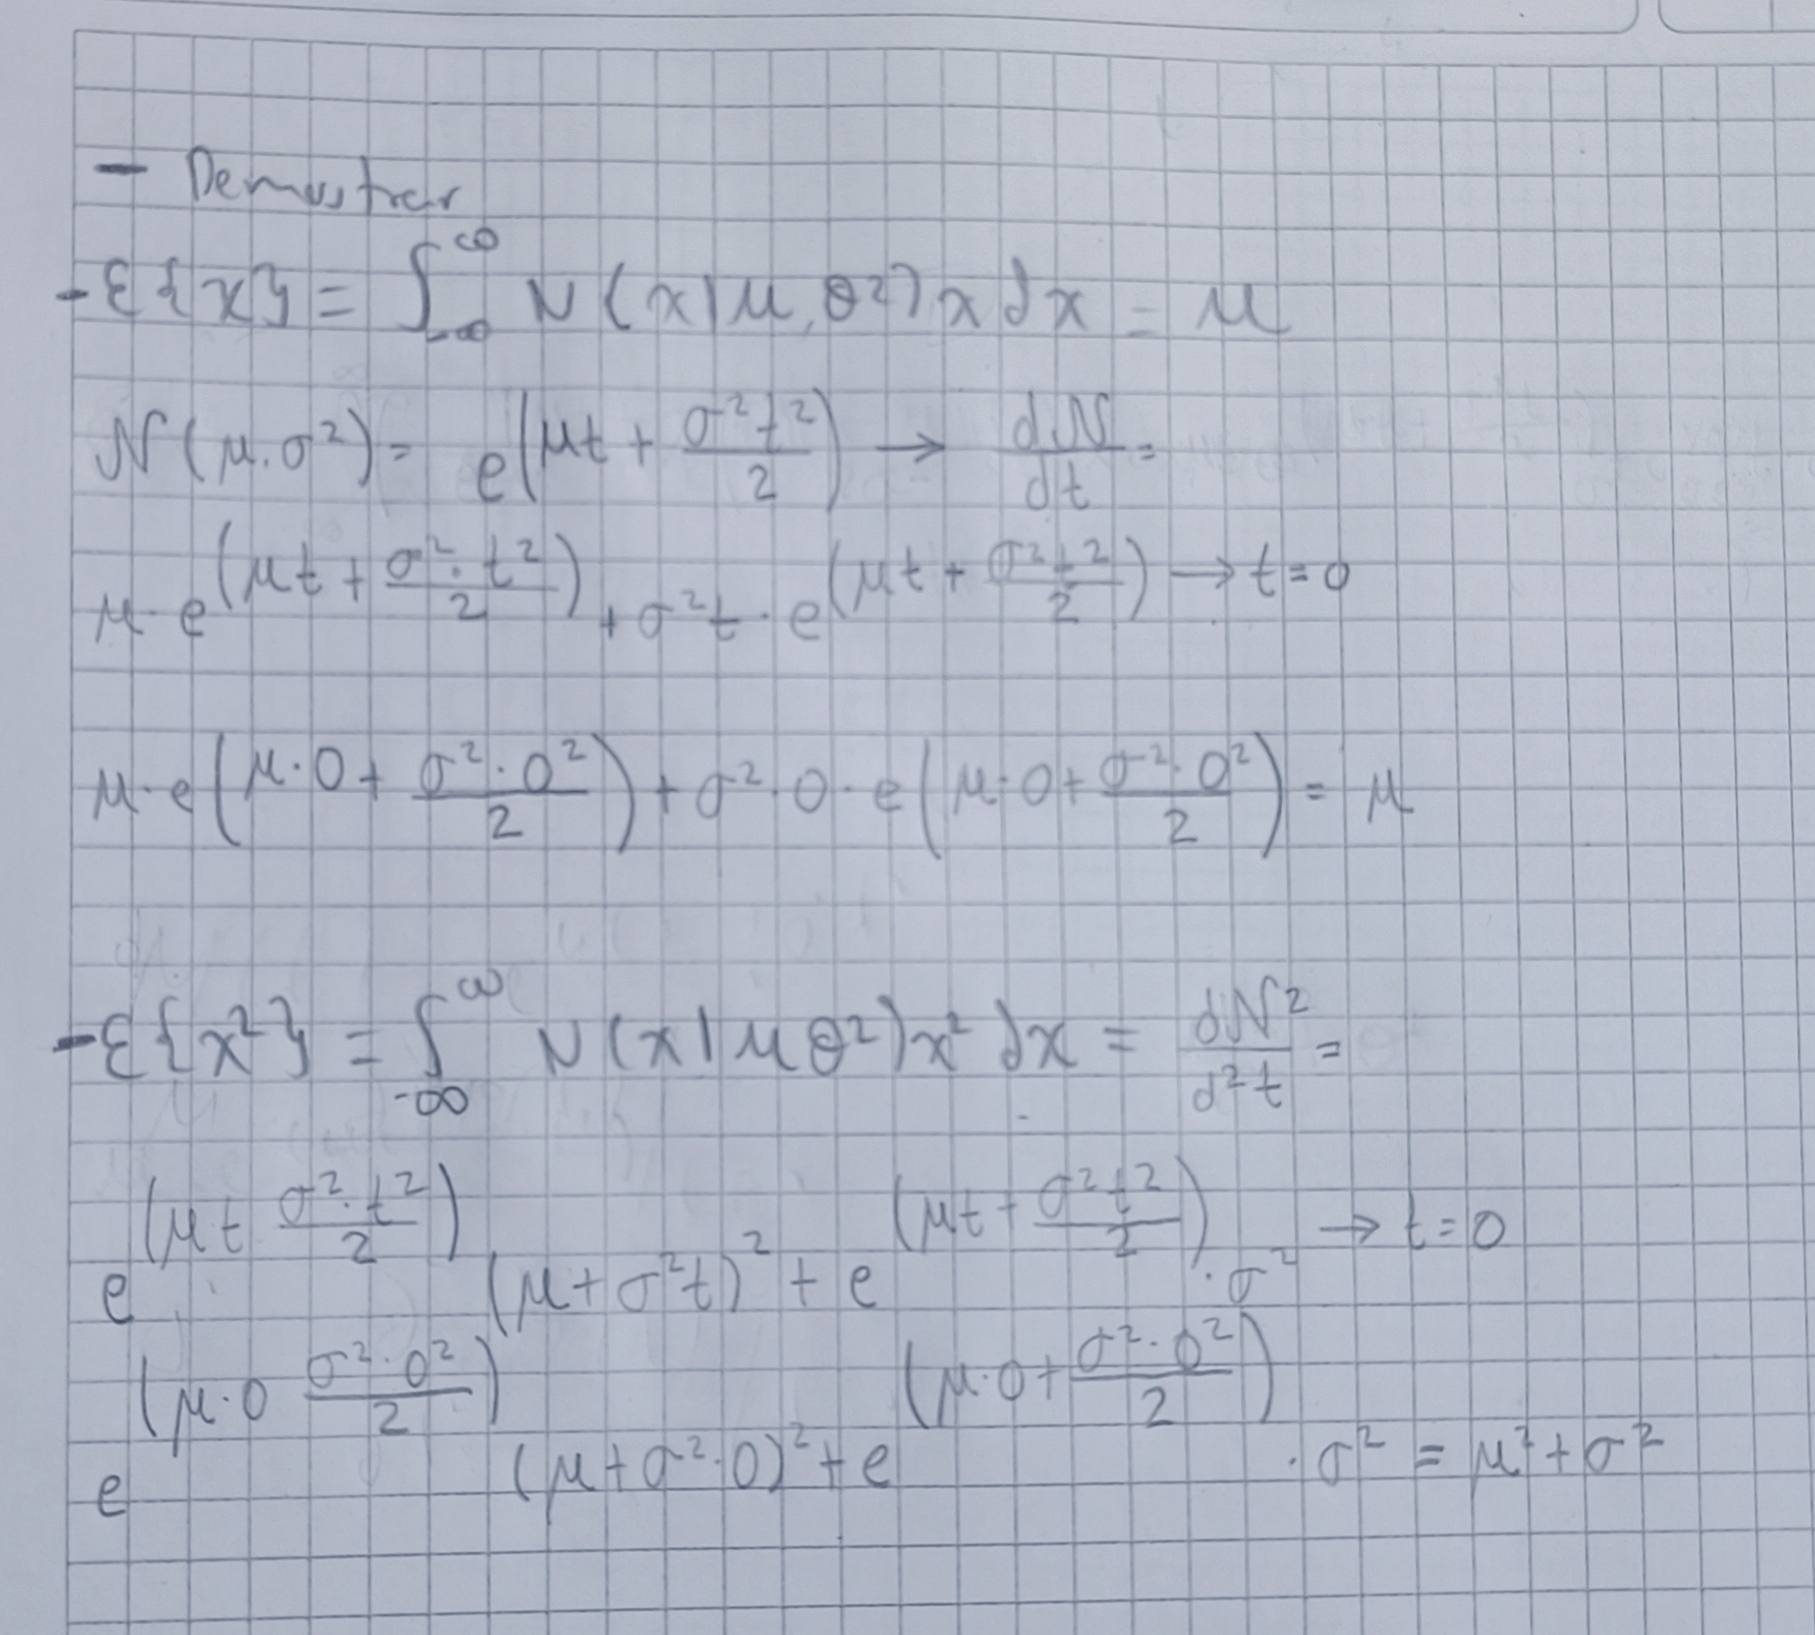 - Demostrar
- Ɛ{x} = ∫_{-∞}^{∞} N(x|μ, θ²) x dx = μ
N(μ.σ²) = e^(μt + σ²t²/2) → dN/dt =
μ·e^(μt + σ²·t²/2) + σ²t·e^(μt + σ²t²/2) → t=0
μ·e^(μ·0 + σ²·0²/2) + σ²·0·e^(μ·0 + σ²·0²/2) = μ
- Ɛ{x²} = ∫_{-∞}^{∞} N(x|μ θ²) x² dx = dN²/d²t =
e^(μt σ²·t²/2) (μ + σ²t)² + e^(μt + σ²t²/2)·σ² → t=0
e^(μ·0 σ²·0²/2) (μ + σ²·0)² + e^(μ·0 + σ²·0²/2)·σ² = μ² + σ²